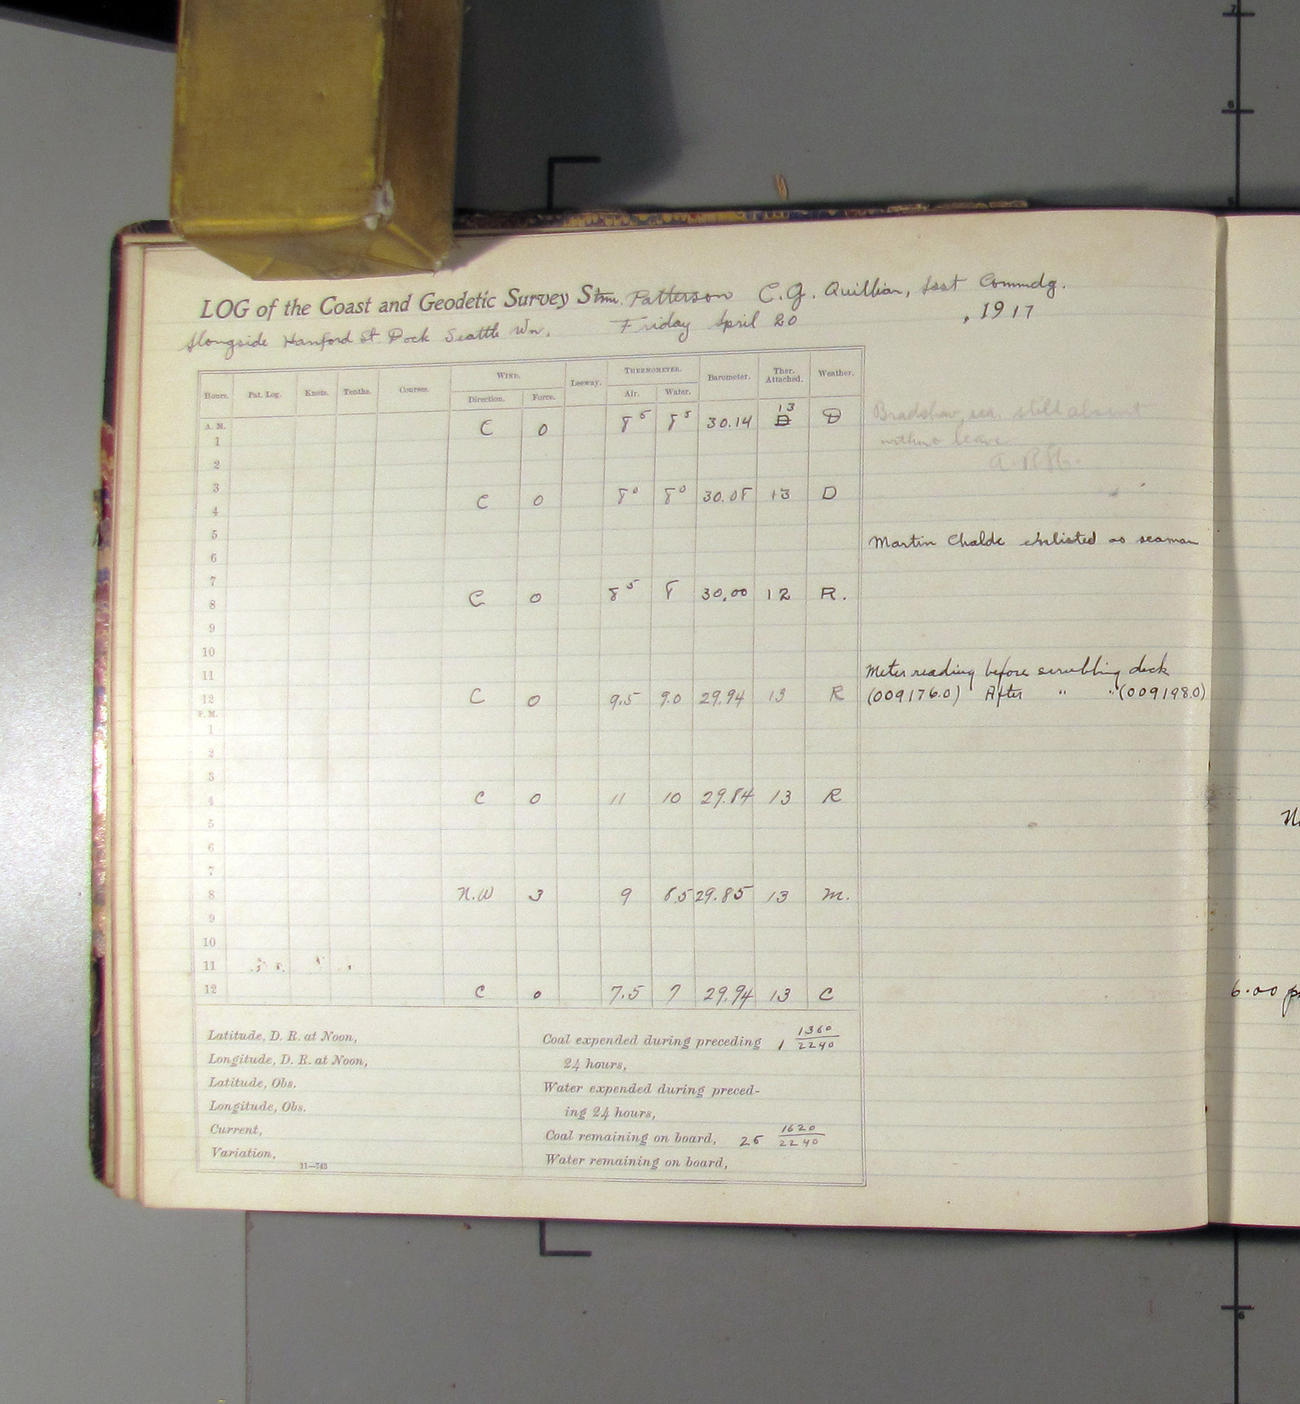 LOG of the Coast and Geodetic Survey Stmr. Patterson C. G. Quillian, Asst Commdg.
Alongside Hanford St Dock Seattle Wn. Friday April 20 , 1917
Hours. Pat. Log. Knots. Tenths. Courses. WIND. Leeway. THERMOMETER. Barometer. Ther. Attached. Weather.
Direction. Force. Air. Water.
A. M. C 0 8⁵ 8⁵ 30.14 13 D Bradshaw, sea. still absent
1 without leave
2
3 C 0 8⁰ 8⁰ 30.08 13 D
4
5 Martin Chalde enlisted as seaman
6
7 C 0 8⁵ 8 30.00 12 R.
8
9
10
11 Meter reading before scrubbing deck
12 C 0 9.5 9.0 29.94 13 R (009176.0) After " " (009198.0)
P. M.
1
2
3
4 C 0 11 10 29.84 13 R
5
6
7
8 N.W 3 9 8.5 29.85 13 m.
9
10
11
12 C 0 7.5 7 29.94 13 C
6.00
Latitude, D. R. at Noon, Coal expended during preceding 1 1360/2240
Longitude, D. R. at Noon, 24 hours,
Latitude, Obs. Water expended during preced-
Longitude, Obs. ing 24 hours,
Current, Coal remaining on board, 26 1620/2240
Variation, Water remaining on board,
11—743